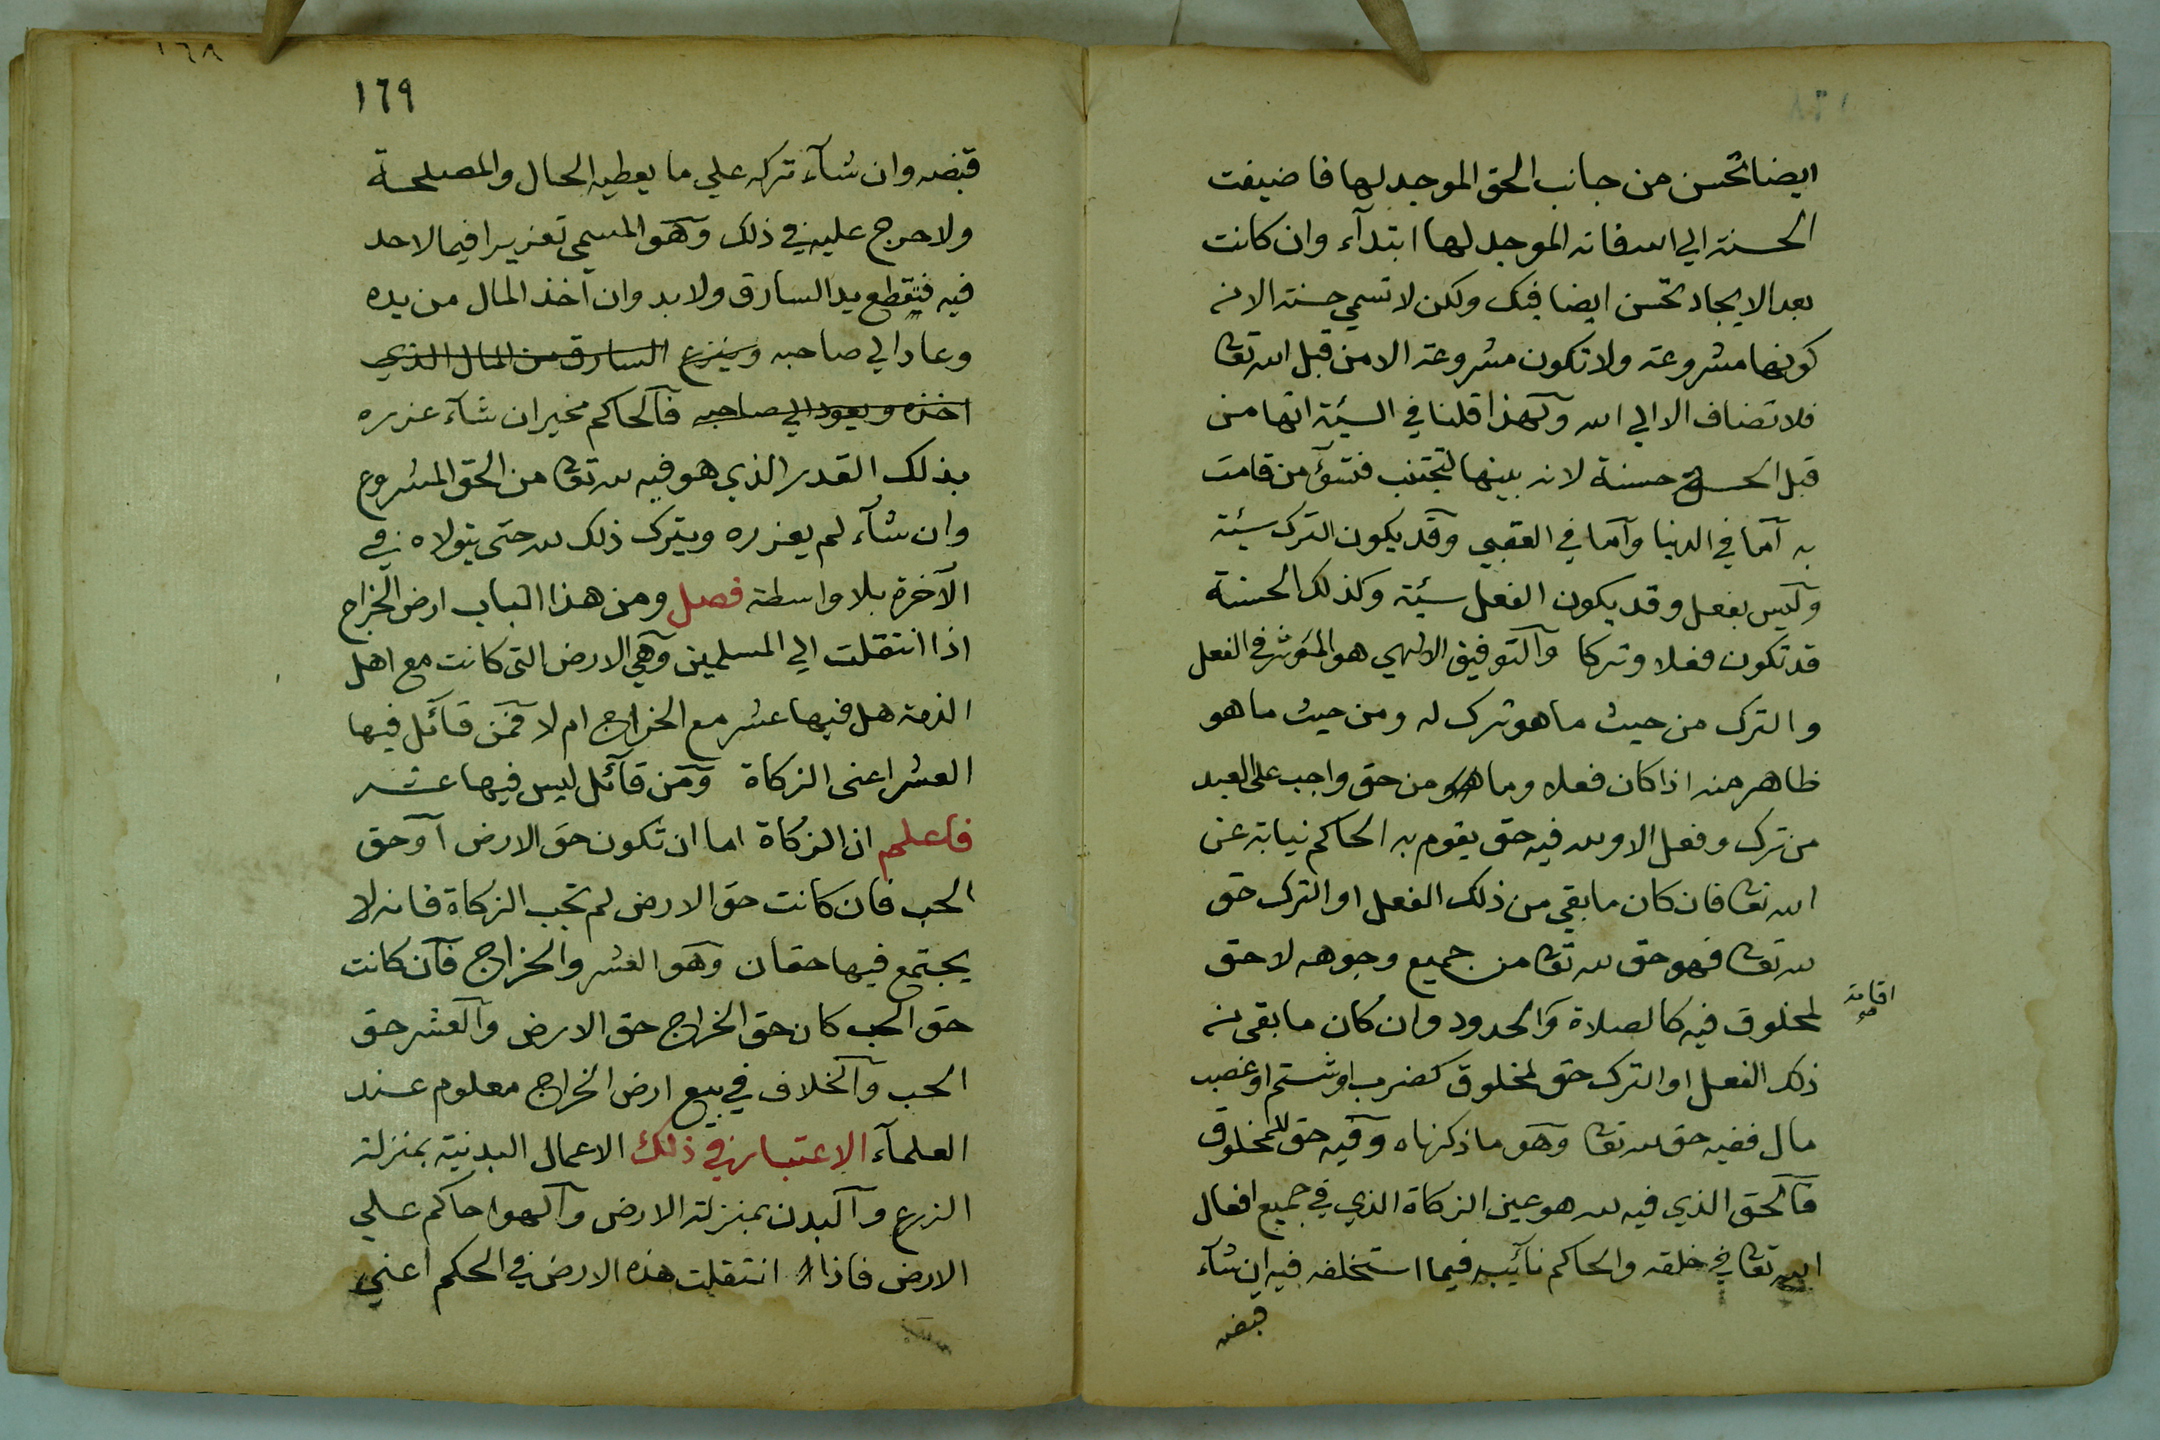 ايضا تحسن من جانب الحق الموجد لها فاضيفت
الحسنة الي الله فانه الموجد لها ابتدآء وان كانت
بعد الايجاد تحسن ايضا فيك ولكن لا تسمي حسنة الا من
كونها مشروعة ولا تكون مشروعة الا من قبل الله تعا
فلا تضاف الا الي الله ولهذا قلنا في السيئة انها من
قبل الحق حسنة لانه بينها لتجتنب فتسؤ من قامت
به اما في الدنيا واما في العقبي وقد يكون الترك سيئة
وليس بفعل وقد يكون الفعل سيئة وكذلك الحسنة
قد تكون فعلا وتركا والتوفيق الالهي هو المؤثر في الفعل
والترك من حيث ما هو ترك له ومن حيث ما هو
ظاهر منه اذا كان فعلا وما من حق واجب علي العبد
من ترك وفعل الا ولله فيه حق يقوم به الحاكم نيابة عن
الله تعا فان كان ما بقي من ذلك الفعل او الترك حق
لله تعا فهو حق لله تعا من جميع وجوهه لا حق
لمخلوق فيه كالصلاة والحدود وان كان ما بقي من
اقامة
ذلك الفعل او الترك حق لمخلوق كضرب او شتم او غصب
مال ففيه حق لله تعا وهو ما ذكرناه وفيه حق للمخلوق
فالحق الذي فيه لله هو عين الزكاة الذي في جميع افعال
الله تعا في خلقه والحاكم نائب فيما استخلفه فيه ان شآء
قبضه
١٦٨
١٦٩
قبضه وان شآء تركه علي ما يعطيه الحال والمصلحة
ولا حرج عليه في ذلك وهو المسمي تعزيرا فيما لا حد
فيه فتقطع يد السارق ولا بد وان اخذ المال من يده
وعاد الي صاحبه وينزع السارق من المال الذي
اخذه ويعود الي صاحبه فالحاكم مخير ان شآء عزره
بذلك القدر الذي هو فيه لله تعا من الحق المشروع
وان شآء لم يعزره ويترك ذلك لله حتى يتولاه في
الآخرة بلا واسطة فصل ومن هذا الباب ارض الخراج
اذا انتقلت الي المسلمين وهي الارض التي كانت مع اهل
الذمة هل فيها عشر مع الخراج ام لا فمن قائل فيها
العشر اعني الزكاة ومن قائل ليس فيها عشر
فاعلم ان الزكاة اما ان تكون حق الارض او حق
الحب فان كانت حق الارض لم تجب الزكاة فانه لا
يجتمع فيها حقان وهو العشر والخراج فان كانت
حق الحب كان حق الخراج حق الارض والعشر حق
الحب والخلاف في بيع ارض الخراج معلوم عند
العلمآء الاعتبار في ذلك الاعمال البدنية بمنزلة
الزرع والبدن بمنزلة الارض والهوا حاكم علي
الارض فاذا انتقلت هذه الارض في الحكم اعني